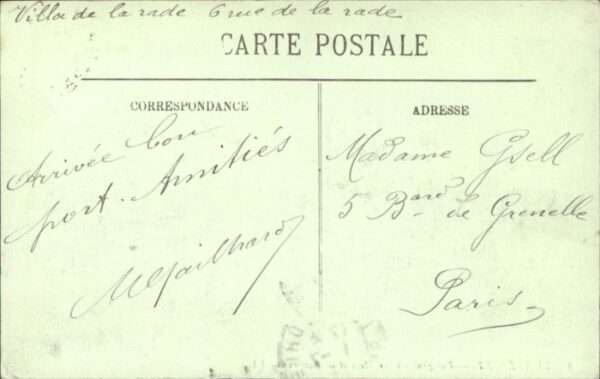 Villa de la rade 6 rue de la rade
CARTE POSTALE
CORRESPONDANCE
ADRESSE
Arrivée bon
port. Amitiés
Madame Gsell
5 Bard de Grenelle
Paris